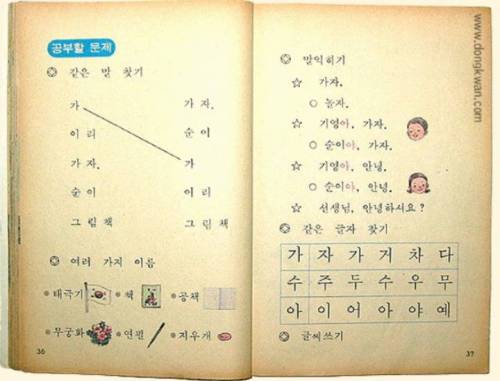 공부할 문제
◎ 같은 말 찾기
가 가자.
이리 순이
가자. 가
순이 이리
그림책 그림책
◎ 여러 가지 이름
태극기 책 공책
무궁화 연필 지우개
36
◎ 말익히기
☆ 가자.
○ 놀자.
☆ 기영아, 가자.
○ 순이야, 가자.
☆ 기영아, 안녕.
○ 순이야, 안녕.
☆ 선생님, 안녕하셔요?
◎ 같은 글자 찾기
가 자 가 거 차 다
수 주 두 수 우 무
아 이 어 아 야 예
◎ 글씨쓰기
37
www.dongkwan.com